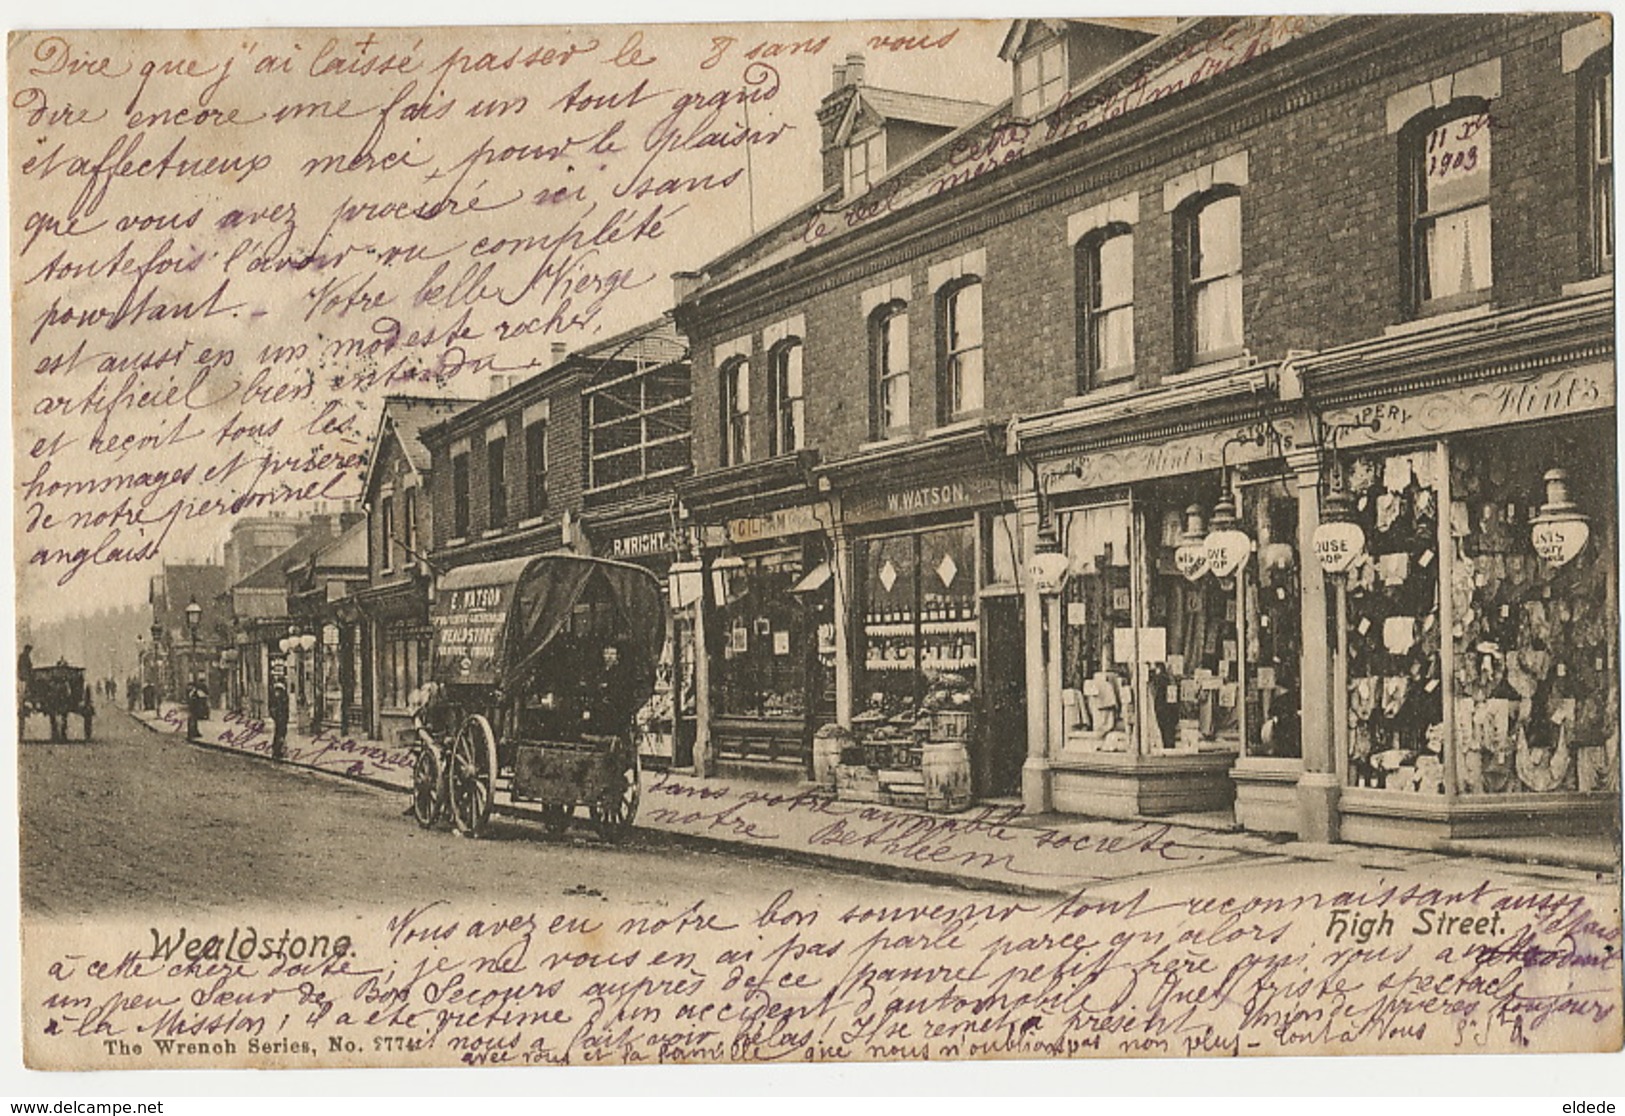 Dire que j'ai laissé passer le 8 sans vous
dire encore une fois un tout grand
et affectueux merci, pour le plaisir
que vous avez procuré ici, sans
toutefois l'avoir vu complété
pourtant. - Votre belle Vierge
est aussi en un modeste rocher,
artificiel bien entendu
et reçoit tous les
hommages et prières
de notre personnel
anglais
cette
le réel merci
11 Xbre
1903
Flint's
DRAPERY
Flint's
W. WATSON.
GILHAM
R. WRIGHT.
E. WATSON
WEALDSTONE
dans votre aimable société.
notre Bethléem
Vous avez eu notre bon souvenir tout reconnaissant aussi
Wealdstone.
High Street.
à cette chère date; je ne vous en ai pas parlé parce qu'alors j'étais
un peu Sœur de Bon Secours auprès de ce pauvre petit frère qui vous a
à la Mission; il a été victime d'un accident d'automobile. Quel triste spectacle
il nous a fait voir, hélas! Il se remet à présent. Union de prières toujours
The Wrench Series, No.
avec vous et la famille que nous n'oublions pas non plus - Tout à vous